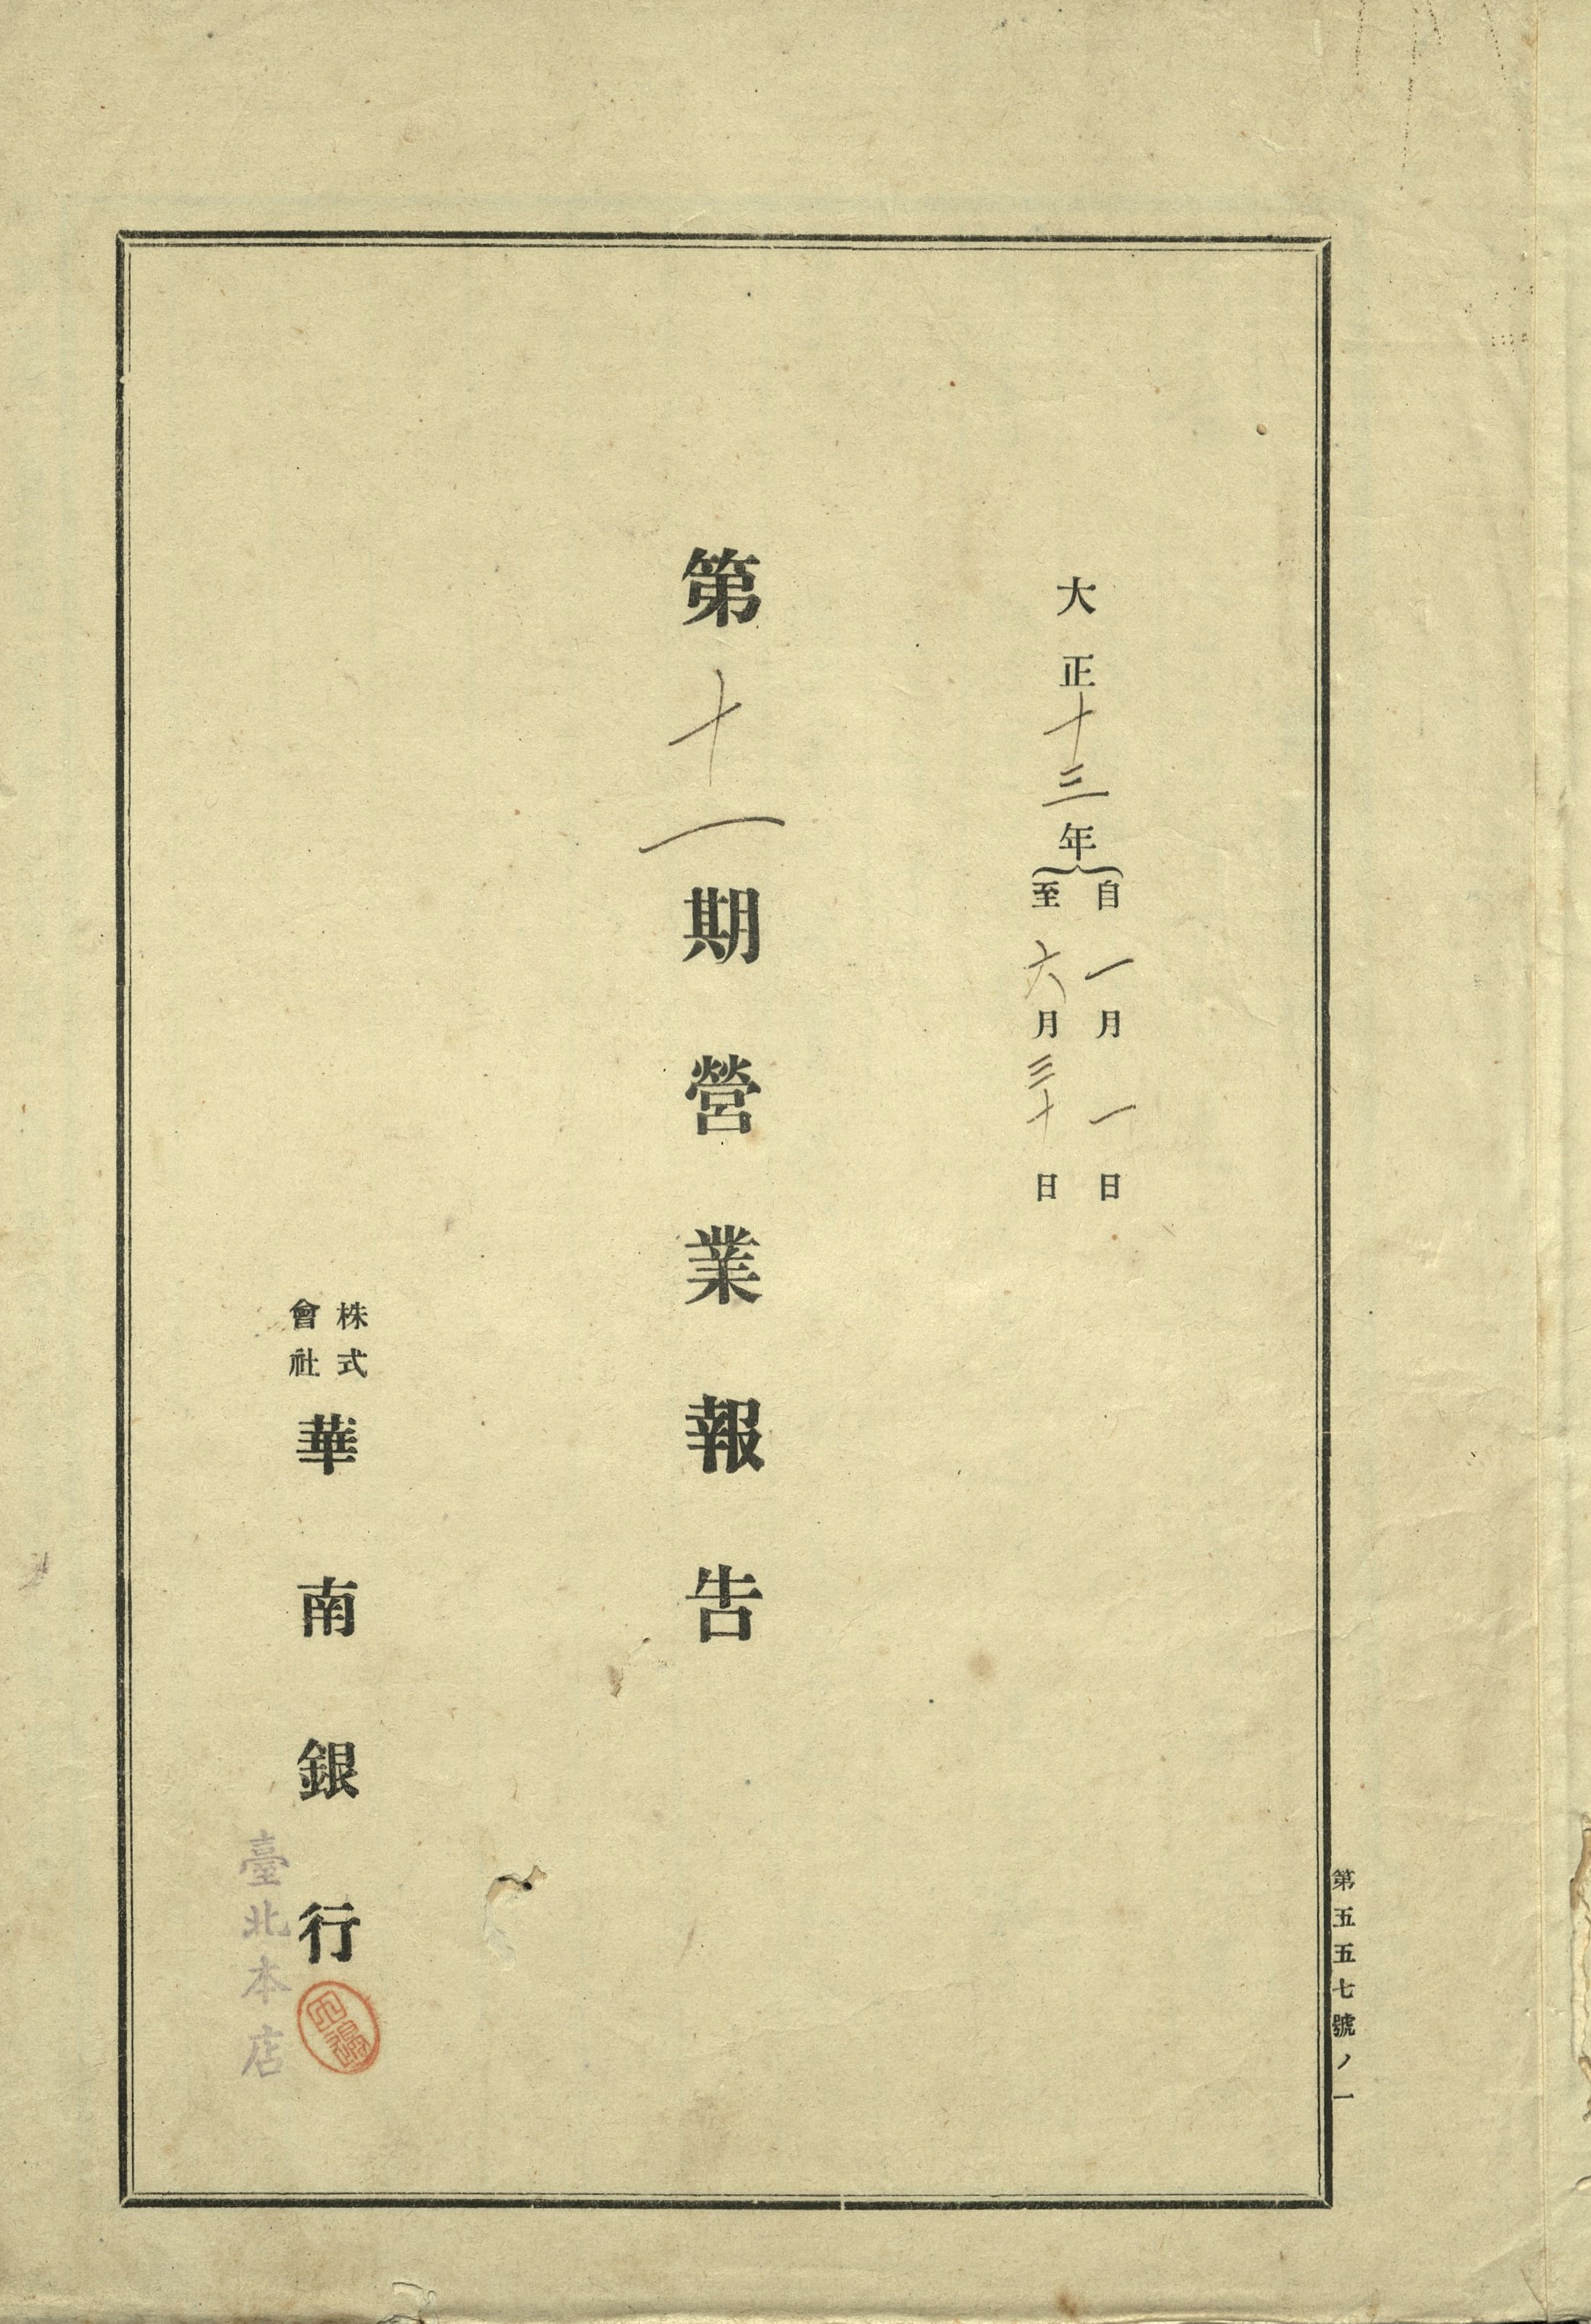 大正十三年
自一月一日
至六月三十日
第十一期營業報告
株式
會社
華南銀行
臺北本店
第五五七號ノ一